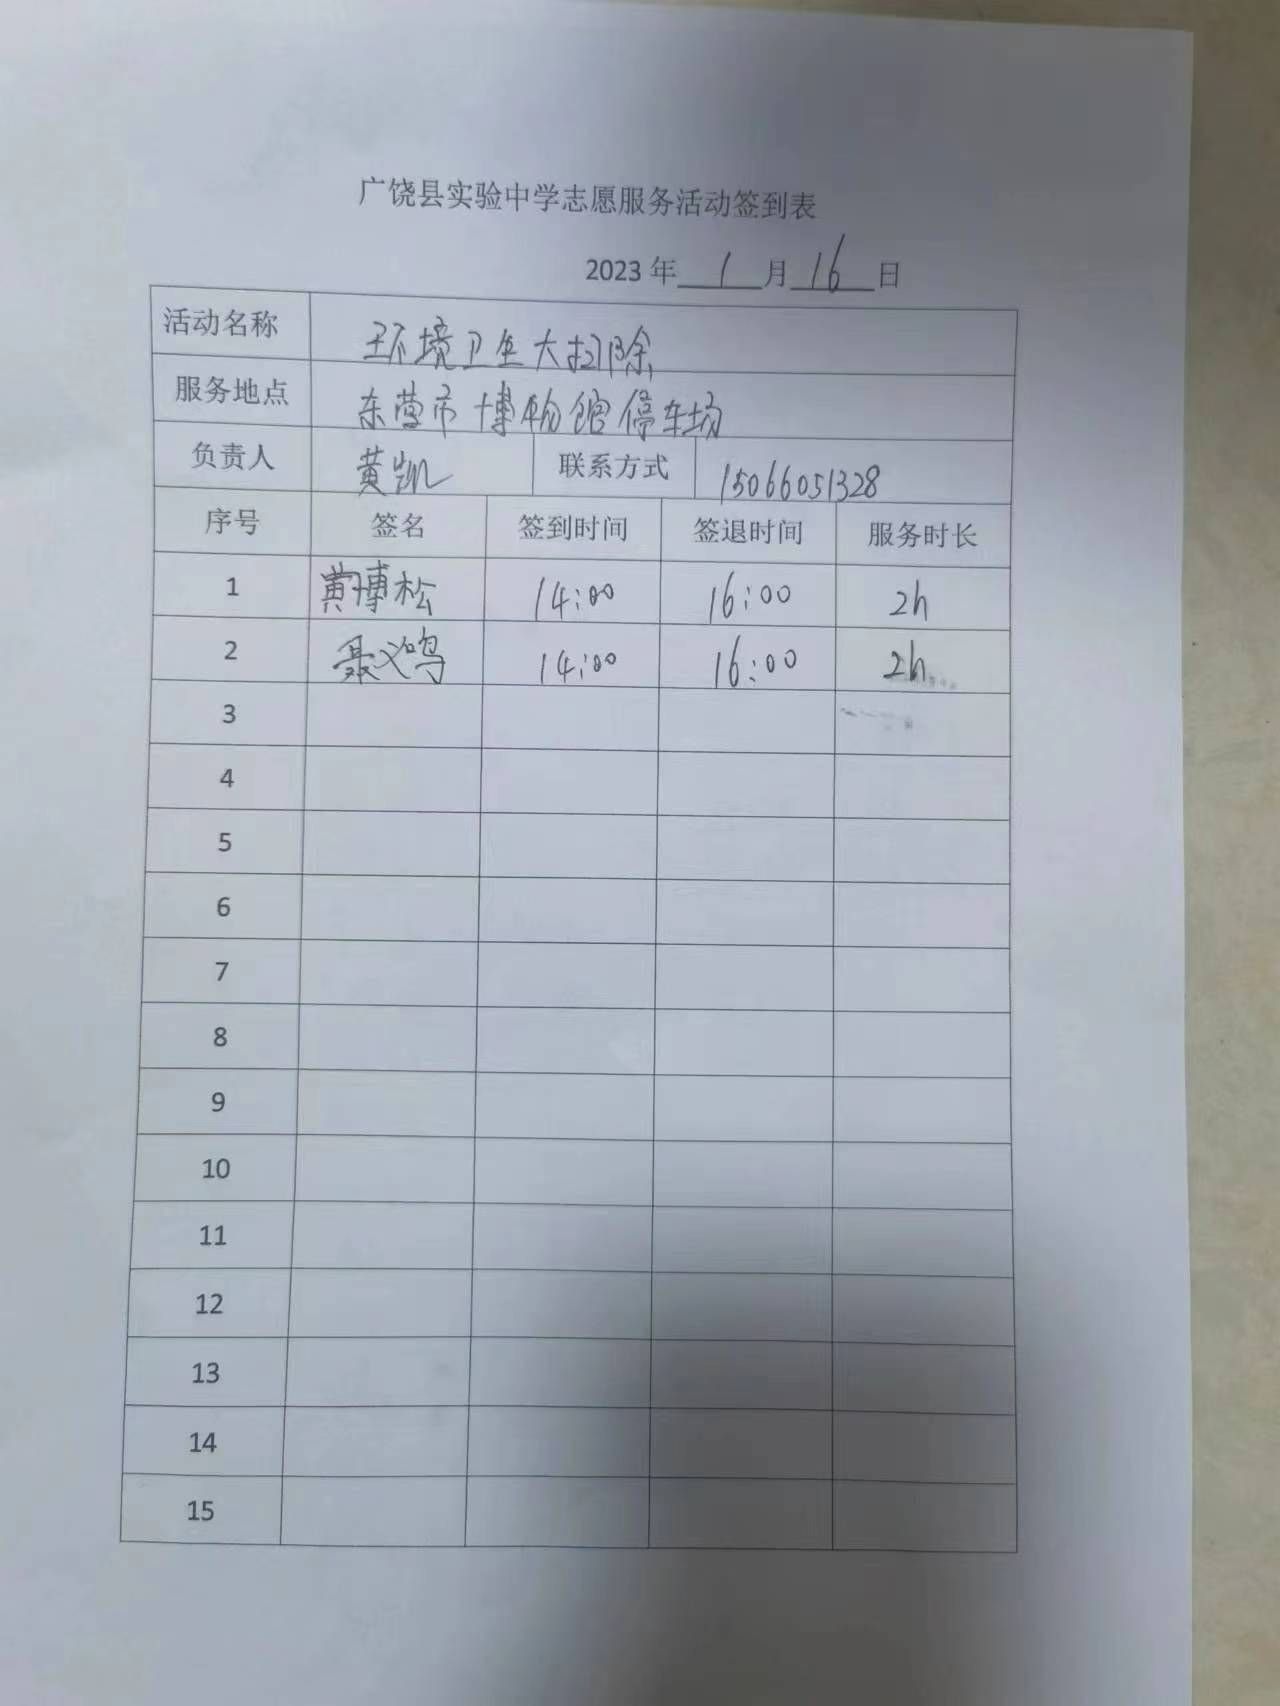 广饶县实验中学志愿服务活动签到表
2023 年 1 月 16 日
活动名称 环境卫生大扫除
服务地点 东营市博物馆停车场
负责人 黄凯 联系方式 15066051328
序号 签名 签到时间 签退时间 服务时长
1 黄博松 14:00 16:00 2h
2 聂义鸣 14:00 16:00 2h
3
4
5
6
7
8
9
10
11
12
13
14
15